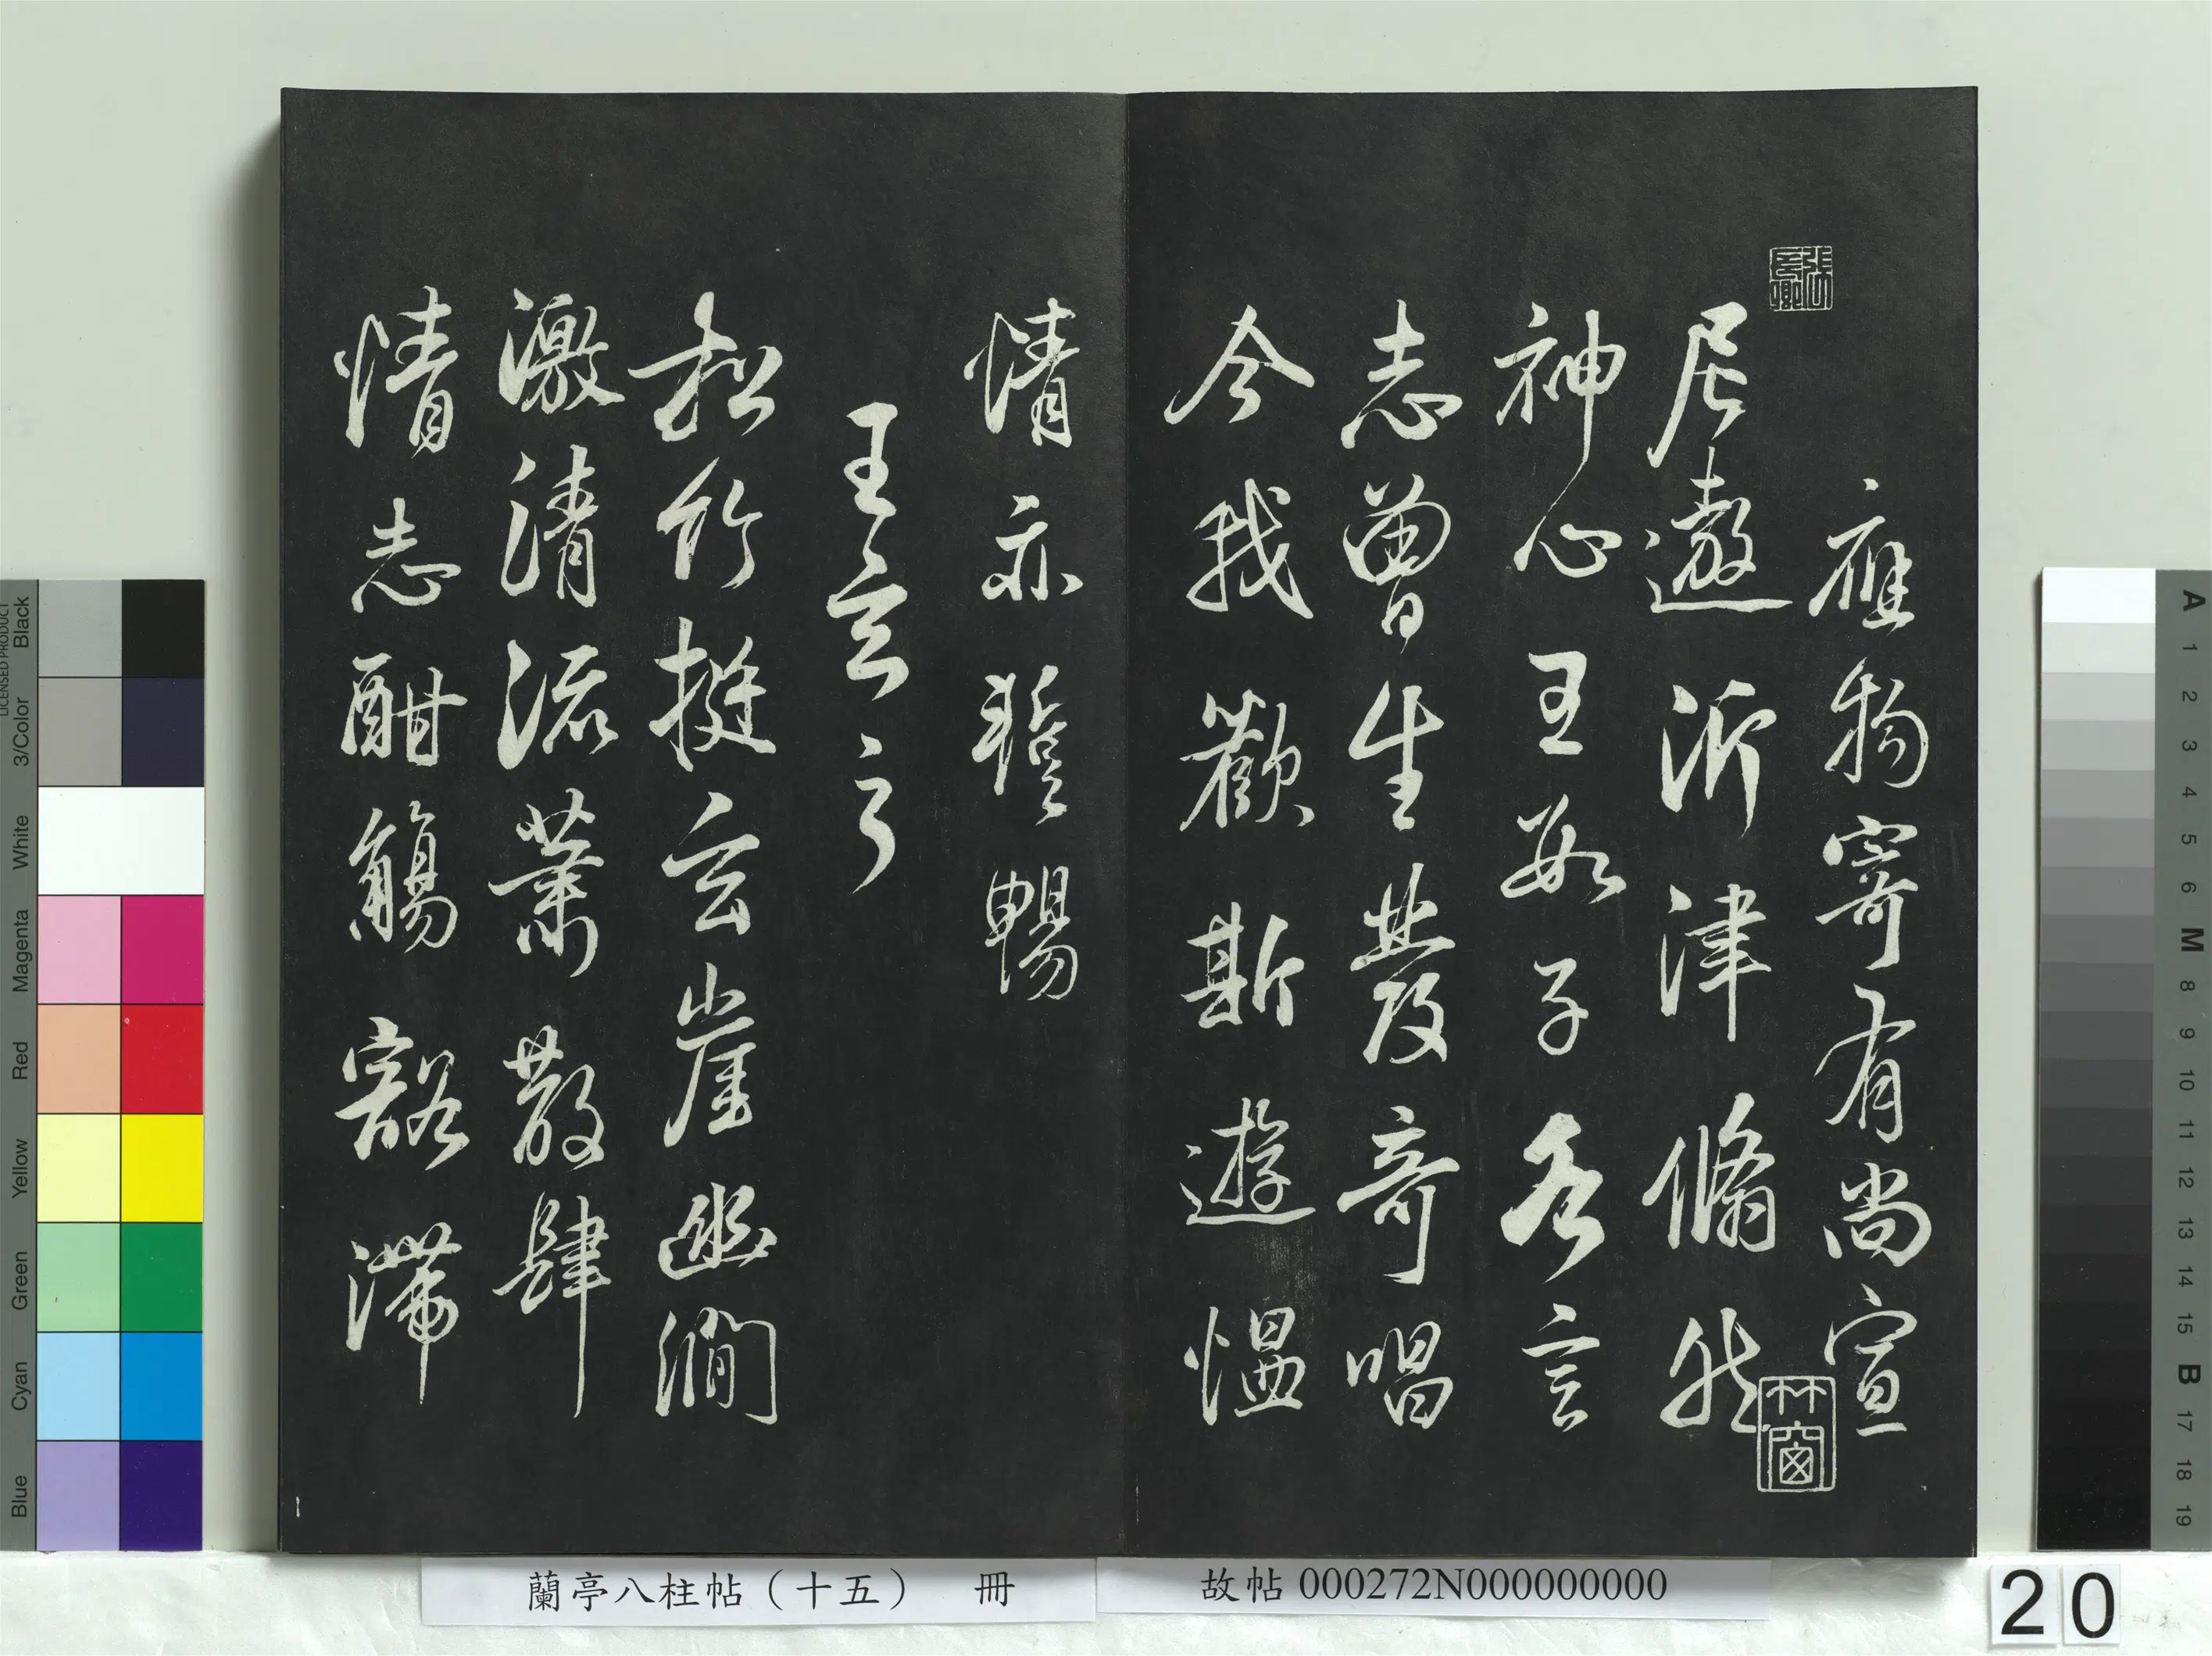 應物寄有尚宣
尼遨沂津翛然
神心王數子各言
志曾生發奇唱
今我歡斯遊慍
情亦暫暢
王玄之
松竹挺玄崖幽澗
激清流蕭散肆
情志酣觴豁滯
蘭亭八柱帖（十五） 冊
故帖 000272N000000000
20
Blue Cyan Green Yellow Red Magenta White 3/Color Black
LICENSED PRODUCT
A 1 2 3 4 5 6 M 8 9 10 11 12 13 14 15 B 17 18 19